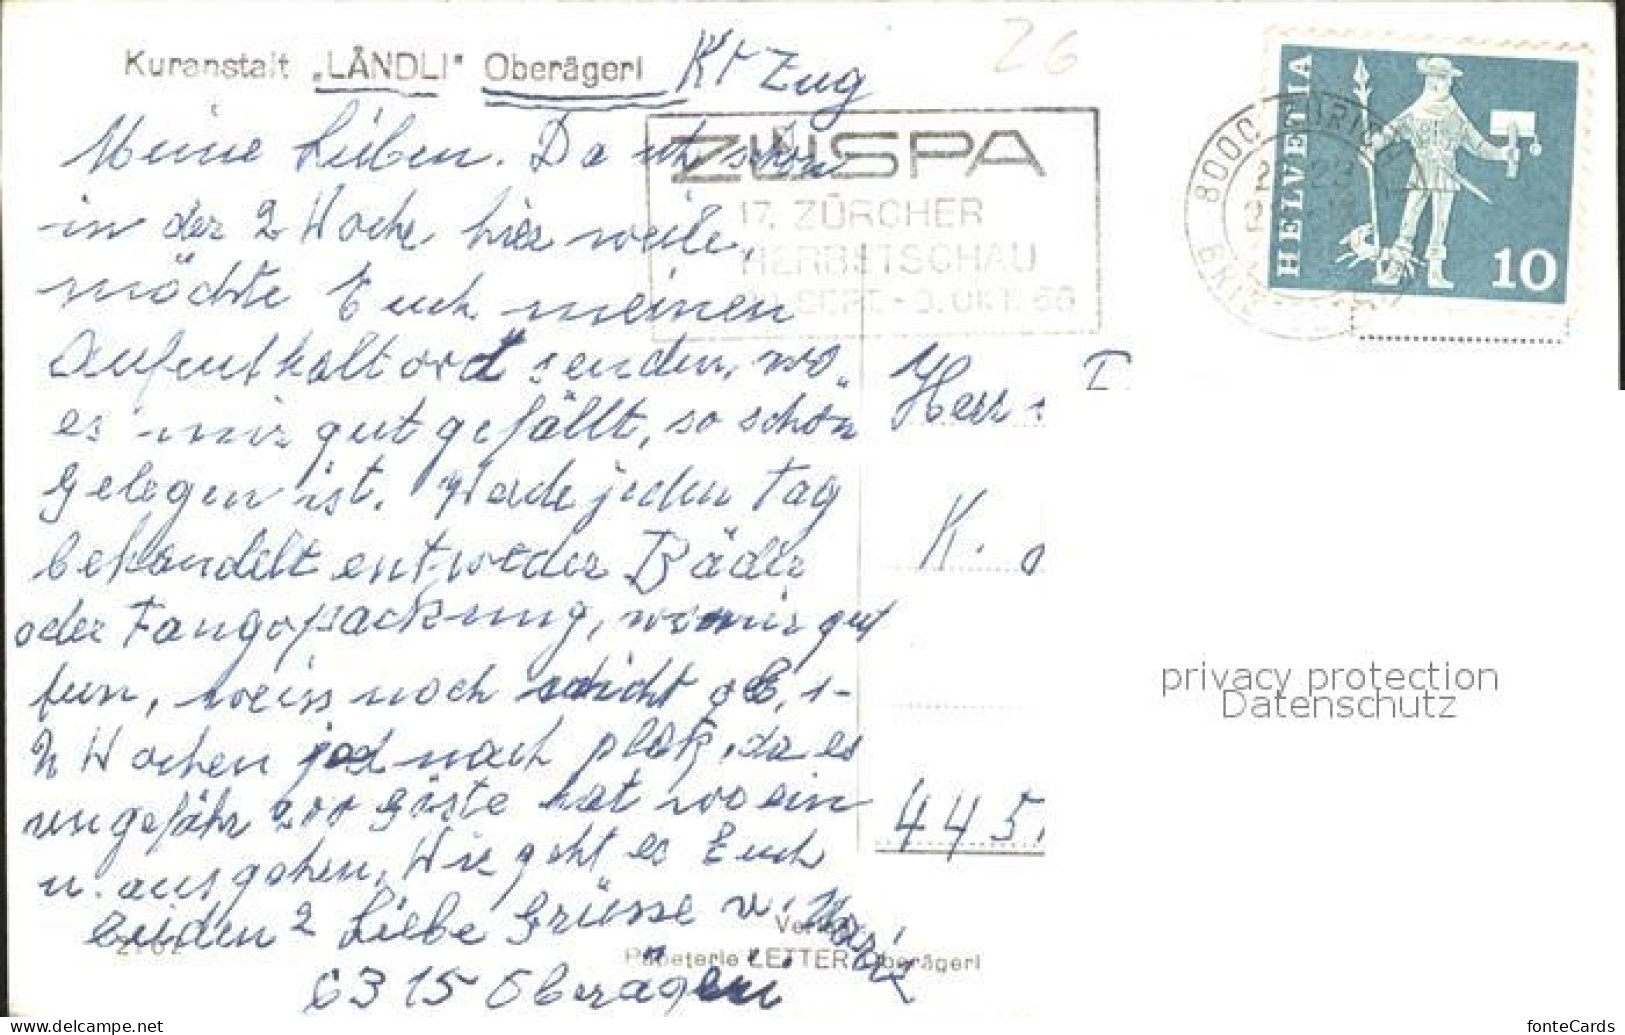 26
Kuranstalt „LÄNDLI" Oberägeri Kt Zug
ZÜSPA
17. ZÜRCHER
HERBSTSCHAU
SEPT. - 9. OKT. 66
8000 ZÜRICH
HELVETIA
10
Meine Lieben. Da ich schon
in der 2 Woche hier weile,
möchte Euch meinen
Aufenthaltord senden, wo
es mir gut gefällt, so schön
gelegen ist. Werde jeden Tag
behandelt entweder Bäder
oder Fangopackung, wo mir gut
tun, weiss noch nicht ob 1-
2 Wochen jed nach platz, da es
ungefähr 200 Gäste hat wo ein
u. ausgehen, Wie geht es Euch
beiden? Liebe Grüsse v.
6315 Oberägeri
Herr
K.
445
privacy protection
Datenschutz
Verlag
Papeterie LETTER, Oberägeri
fonteCards
delcampe.net